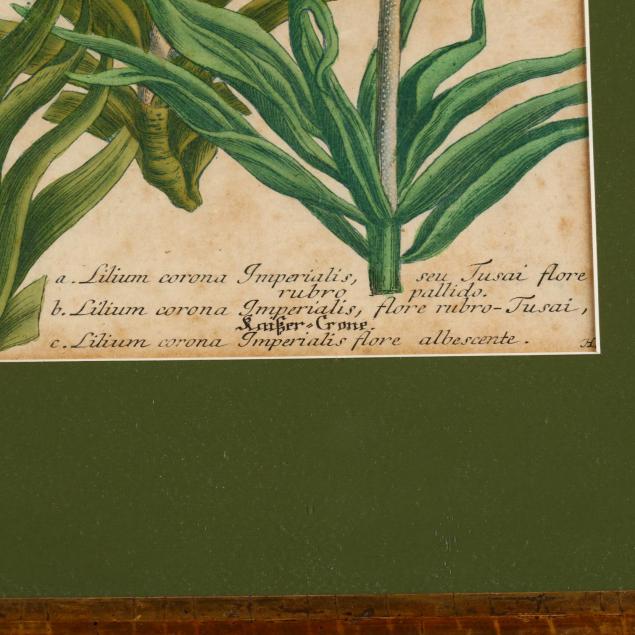 a. Lilium corona Imperialis, seu Tusai flore
rubro pallido.
b. Lilium corona Imperialis, flore rubro-Tusai,
Kaÿßer-Crone.
c. Lilium corona Imperialis flore albescente. H.